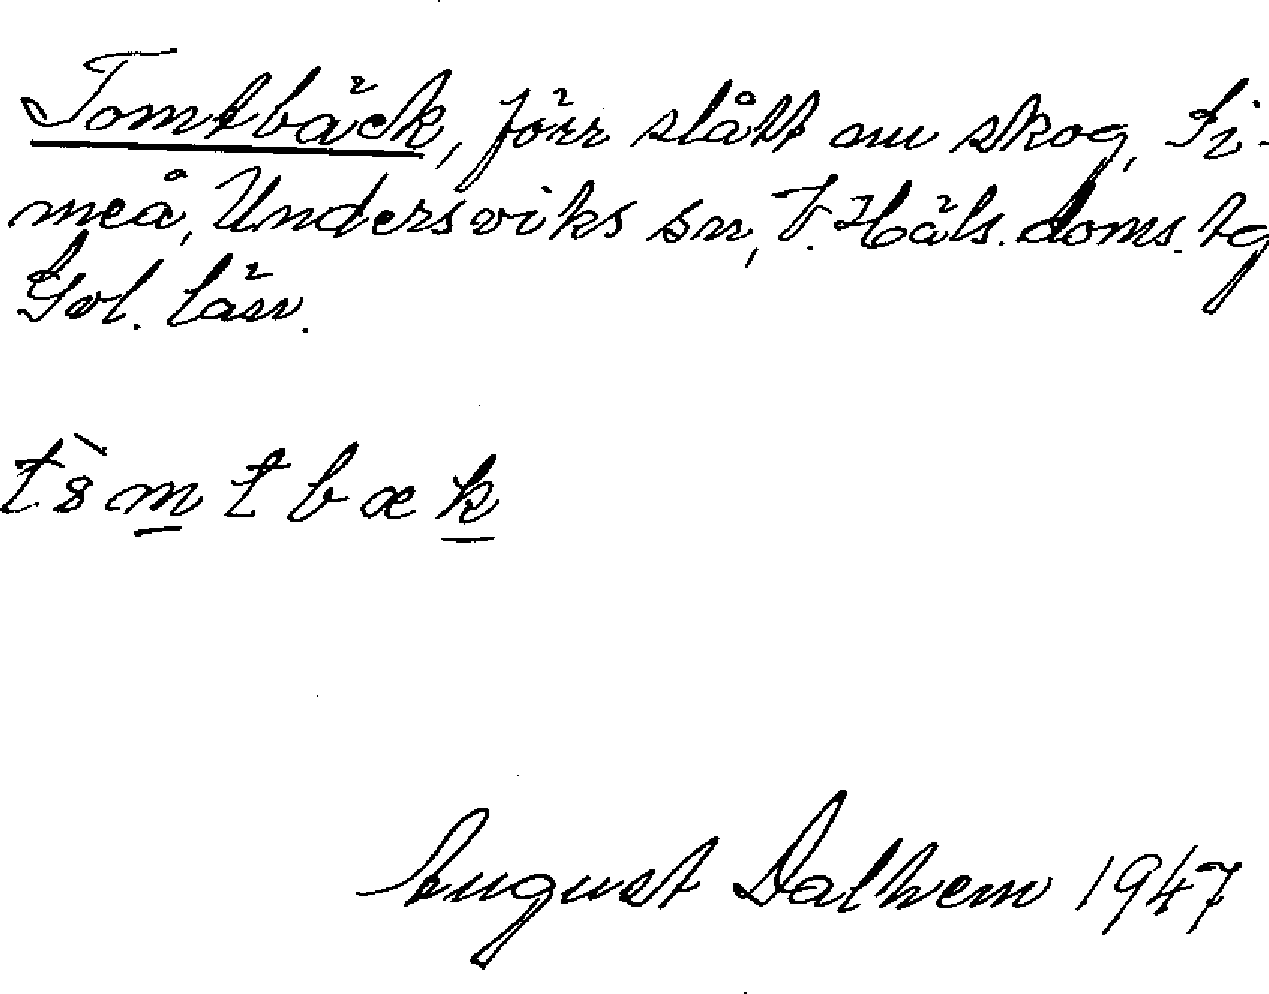 Tomtbäck, förr slått nu skog, Si-
meå, Undersviks sn, V. Häls. doms. tg
Gvl. län.
tmtbæk
August Dalhem 1947